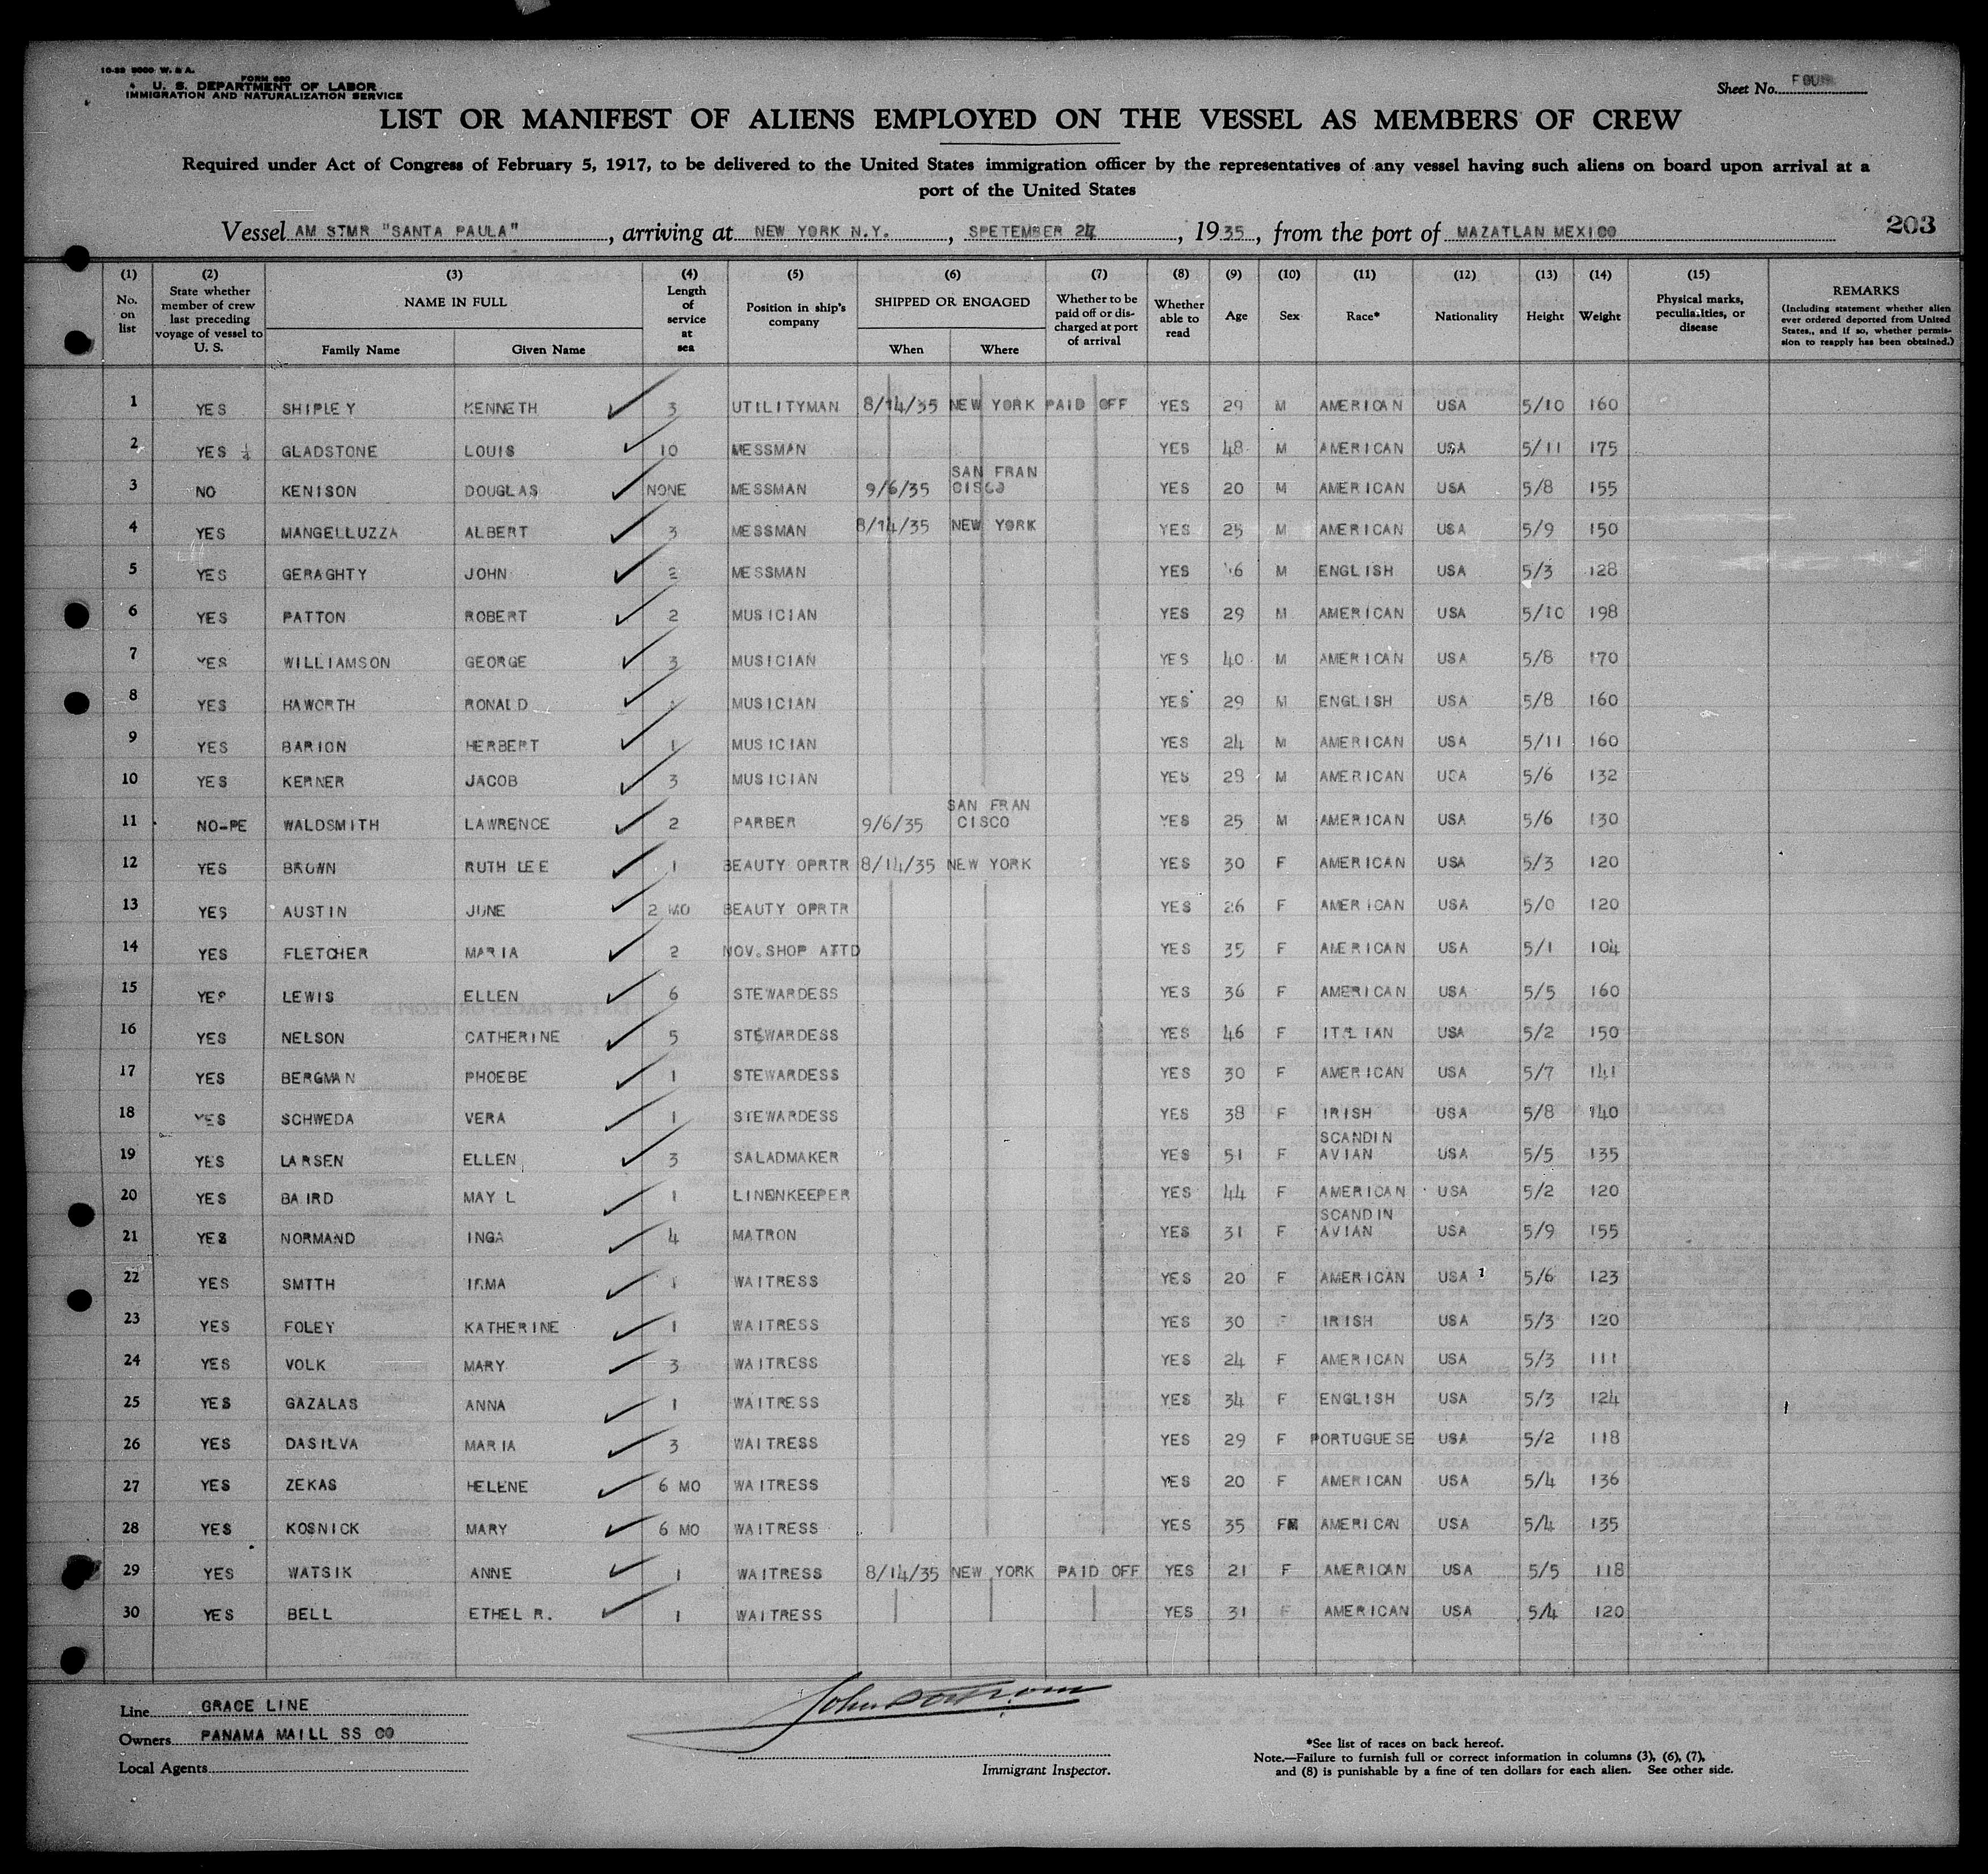 10-33 5000 W. & A.
FORM 680
U. S. DEPARTMENT OF LABOR
IMMIGRATION AND NATURALIZATION SERVICE
Sheet No. FOUR
LIST OR MANIFEST OF ALIENS EMPLOYED ON THE VESSEL AS MEMBERS OF CREW
Required under Act of Congress of February 5, 1917, to be delivered to the United States immigration officer by the representatives of any vessel having such aliens on board upon arrival at a
port of the United States
Vessel AM STMR "SANTA PAULA", arriving at NEW YORK N.Y., SPETEMBER 24, 1935, from the port of MAZATLAN MEXICO 203
(1) (2) (3) (4) (5) (6) (7) (8) (9) (10) (11) (12) (13) (14) (15)
No. on list
State whether member of crew last preceding voyage of vessel to U. S.
NAME IN FULL
Family Name Given Name
Length of service at sea
Position in ship's company
SHIPPED OR ENGAGED
When Where
Whether to be paid off or discharged at port of arrival
Whether able to read
Age Sex Race* Nationality Height Weight
Physical marks, peculiarities, or disease
REMARKS
(Including statement whether alien ever ordered deported from United States, and if so, whether permission to reapply has been obtained.)
1 YES SHIPLEY KENNETH 3 UTILITYMAN 8/14/35 NEW YORK PAID OFF YES 29 M AMERICAN USA 5/10 160
2 YES GLADSTONE LOUIS 10 MESSMAN YES 48 M AMERICAN USA 5/11 175
3 NO KENISON DOUGLAS NONE MESSMAN 9/6/35 SAN FRAN CISCO YES 20 M AMERICAN USA 5/8 155
4 YES MANGELLUZZA ALBERT 3 MESSMAN 8/14/35 NEW YORK YES 25 M AMERICAN USA 5/9 150
5 YES GERAGHTY JOHN 2 MESSMAN YES M ENGLISH USA 5/3 128
6 YES PATTON ROBERT 2 MUSICIAN YES 29 M AMERICAN USA 5/10 198
7 YES WILLIAMSON GEORGE 3 MUSICIAN YES 40 M AMERICAN USA 5/8 170
8 YES HAWORTH RONALD MUSICIAN YES 29 M ENGLISH USA 5/8 160
9 YES BARION HERBERT 1 MUSICIAN YES 24 M AMERICAN USA 5/11 160
10 YES KERNER JACOB 3 MUSICIAN YES 28 M AMERICAN USA 5/6 132
11 NO-PE WALDSMITH LAWRENCE 2 PARBER 9/6/35 SAN FRAN CISCO YES 25 M AMERICAN USA 5/6 130
12 YES BROWN RUTH LEE 1 BEAUTY OPRTR 8/14/35 NEW YORK YES 30 F AMERICAN USA 5/3 120
13 YES AUSTIN JUNE 2 MO BEAUTY OPRTR YES 26 F AMERICAN USA 5/0 120
14 YES FLETCHER MARIA 2 NOV.SHOP ATTD YES 35 F AMERICAN USA 5/1 104
15 YES LEWIS ELLEN 6 STEWARDESS YES 36 F AMERICAN USA 5/5 160
16 YES NELSON CATHERINE 5 STEWARDESS YES 46 F ITALIAN USA 5/2 150
17 YES BERGMAN PHOEBE 1 STEWARDESS YES 30 F AMERICAN USA 5/7 141
18 YES SCHWEDA VERA 1 STEWARDESS YES 38 F IRISH USA 5/8 140
19 YES LARSEN ELLEN 3 SALADMAKER YES 51 F SCANDIN AVIAN USA 5/5 135
20 YES BAIRD MAY L 1 LINENKEEPER YES 44 F AMERICAN USA 5/2 120
21 YES NORMAND INGA 4 MATRON YES 31 F SCANDIN AVIAN USA 5/9 155
22 YES SMITH IRMA 1 WAITRESS YES 20 F AMERICAN USA 5/6 123
23 YES FOLEY KATHERINE 1 WAITRESS YES 30 F IRISH USA 5/3 120
24 YES VOLK MARY 3 WAITRESS YES 24 F AMERICAN USA 5/3 111
25 YES GAZALAS ANNA 1 WAITRESS YES 34 F ENGLISH USA 5/3 124
26 YES DASILVA MARIA 3 WAITRESS YES 29 F PORTUGUESE USA 5/2 118
27 YES ZEKAS HELENE 6 MO WAITRESS YES 20 F AMERICAN USA 5/4 136
28 YES KOSNICK MARY 6 MO WAITRESS YES 35 F AMERICAN USA 5/4 135
29 YES WATSIK ANNE 1 WAITRESS 8/14/35 NEW YORK PAID OFF YES 21 F AMERICAN USA 5/5 118
30 YES BELL ETHEL R. 1 WAITRESS YES 31 F AMERICAN USA 5/4 120
Line GRACE LINE
Owners PANAMA MAILL SS CO
Local Agents
Immigrant Inspector.
*See list of races on back hereof.
Note.—Failure to furnish full or correct information in columns (3), (6), (7),
and (8) is punishable by a fine of ten dollars for each alien. See other side.